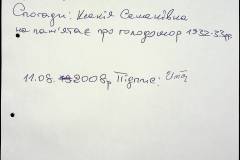 Спогади: Ксенія Семенівна
не пам'ятає про голодомор 1932-33рр.
11.08. 2008р Підпис: